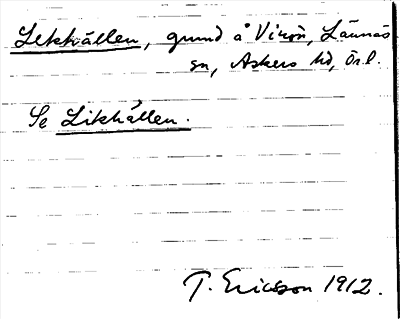 Lekhällen, grund å Virön, Lännäs
sn, Askers hd, Örl.
Se Likhällen.
T. Ericsson 1912.